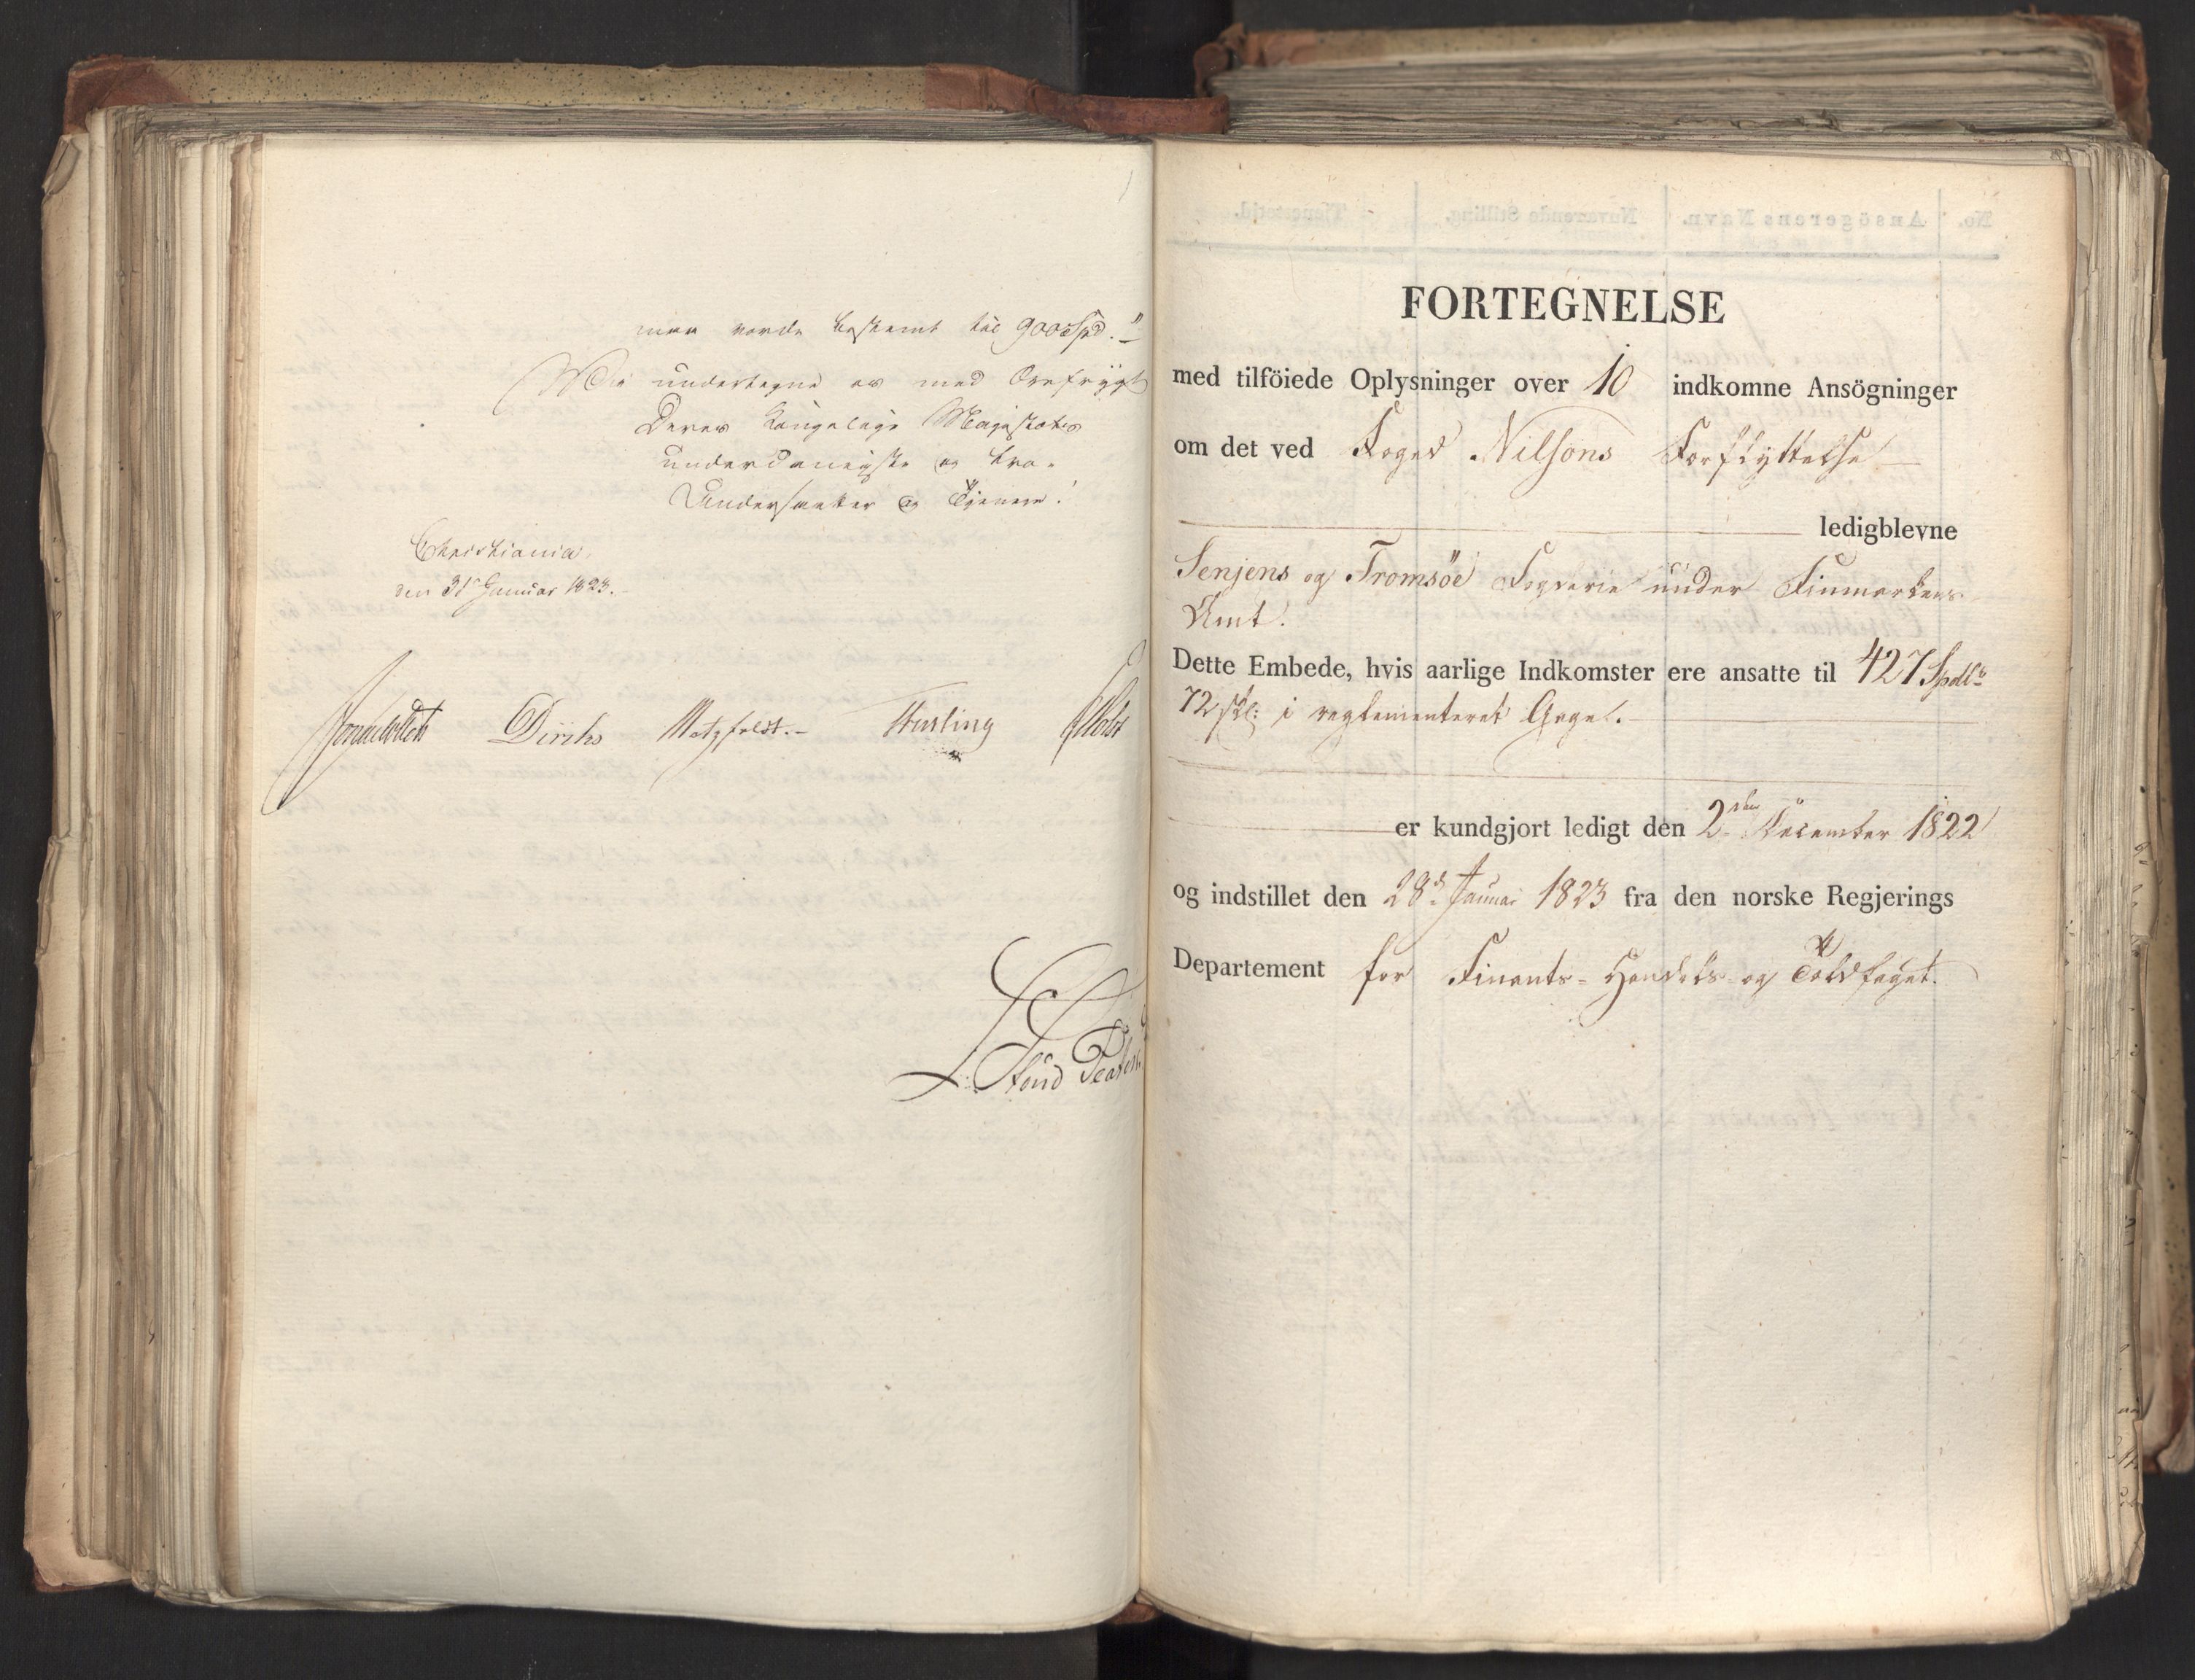 maa vorde bestemt til 900 Spd."
Vi undertegne os med Ærefrygt
Deres Kongelige Majestæts
underdanigste og tro-
Undersaatter og Tjenere!
Christiania
den 31 Januar 1823.
Sommerhielm Diriks Motzfeldt. Fasting PHolst
FORTEGNELSE
med tilföiede Oplysninger over 10 indkomne Ansögninger
om det ved Foged Nilsons Forflyttelse
ledigblevne
Senjens og Tromsöe Fogderie under Finmarkens
Amt.
Dette Embede, hvis aarlige Indkomster ere ansatte til 427 Spdlr
72 skl: i reglementeret Gage.
er kundgjort ledigt den 2den December 1822
og indstillet den 28d Januar 1823 fra den norske Regjerings
Departement for Finants- Handels- og Toldfaget.
No. Ansögerens Navn. Nuværende Stilling. Tjenestetid.